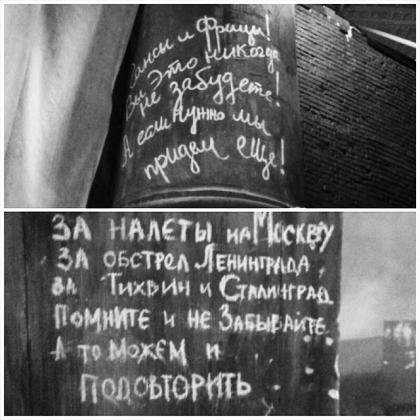 Гансы и Фрицы!
Вы Это никогда
не забудете!
А если нужно мы
придем еще!
ЗА НАЛЕТЫ на МОСКВУ
ЗА ОБСТРЕЛ ЛЕНИНГРАДА,
ЗА ТИХВИН и СТАЛИНГРАД
ПОМНИТЕ и НЕ ЗАБЫВАЙТЕ
А то МОЖЕМ И
ПОДОВТОРИТЬ